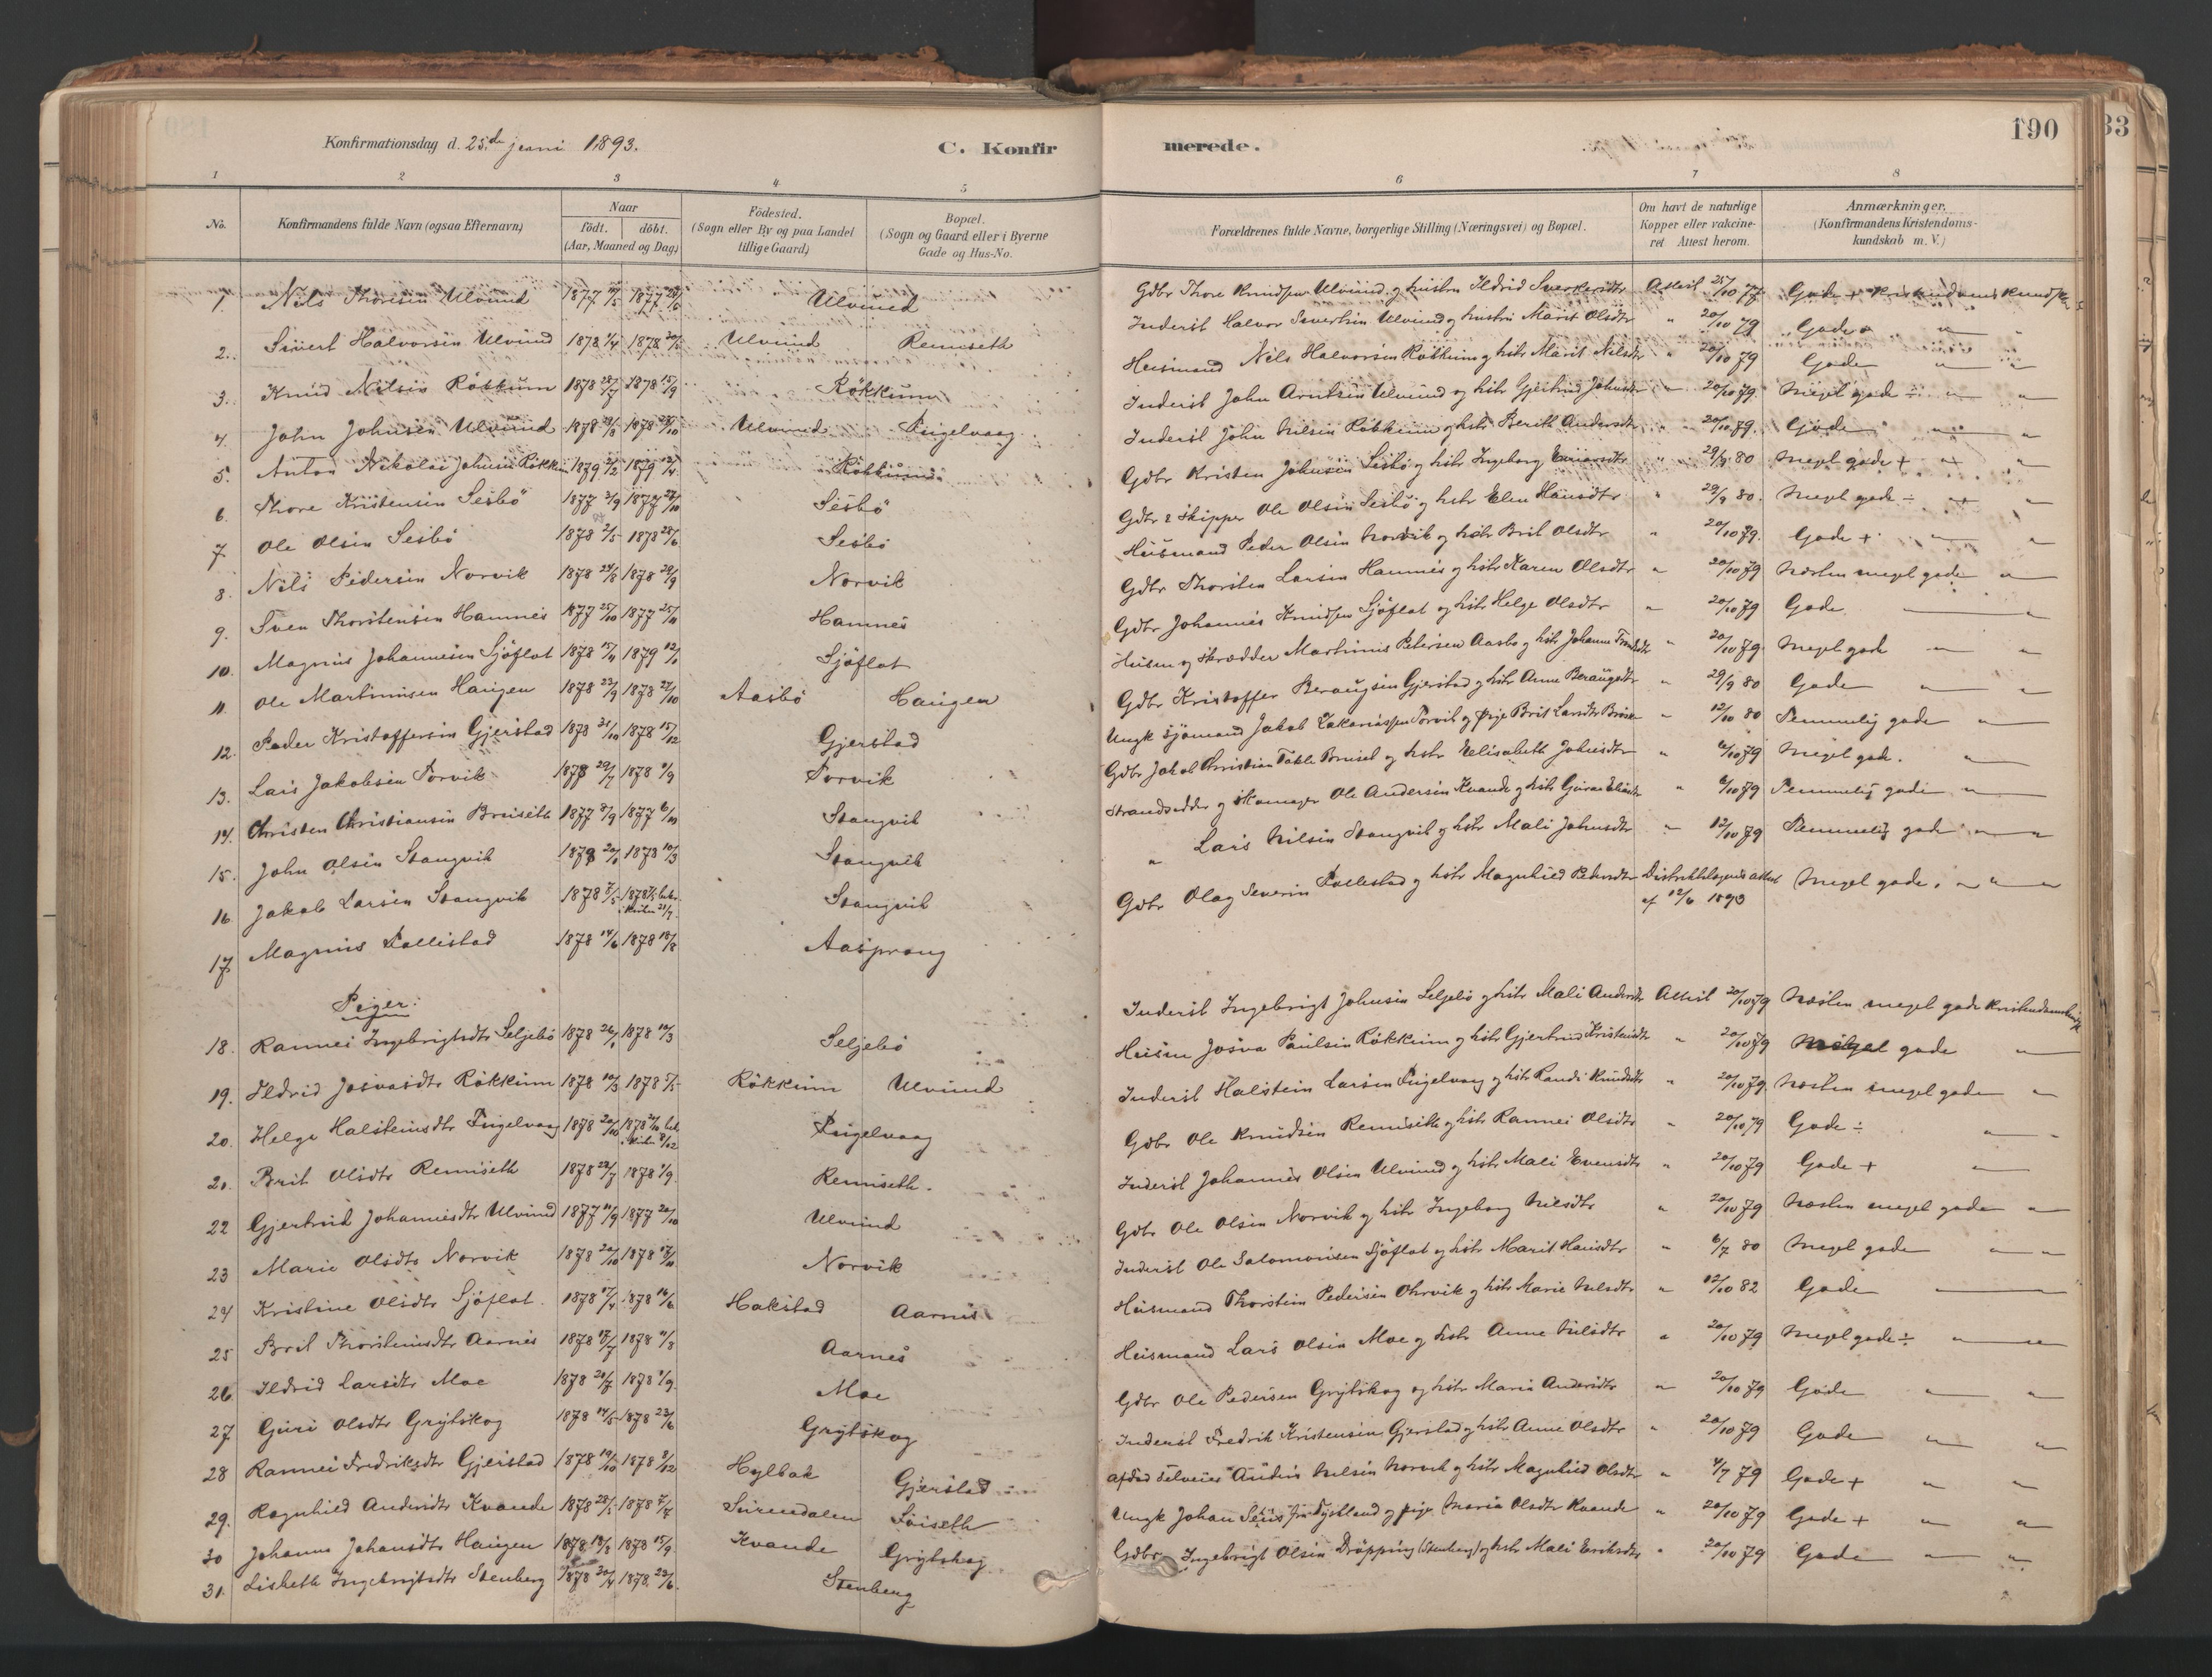 190
33
Konfirmationsdag d. 25.de juni 1893.
C. Konfirmerede.
1 2 3 4 5 6 7 8
No.
Konfirmandens fulde Navn (ogsaa Efternavn)
Naar
födt. döbt.
(Aar, Maaned og Dag)
Födested.
(Sogn eller By og paa Landet
tillige Gaard)
Bopæl.
(Sogn og Gaard eller i Byerne
Gade og Hus-No.
Forældrenes fulde Navne, borgerlige Stilling (Næringsvei) og Bopæl.
Om havt de naturlige
Kopper eller vakcine-
ret Attest herom.
Anmærkninger.
(Konfirmandens Kristendoms-
kundskab m. V.)
1. Nils Thoresen Ulvund 1877 1877 Ulvund Gdbr Thore Knudsen Ulvund og hustru Ildrid Sverkersdtr Attest 25/10 77 Gode + Kristendoms kundsk
2. Sivert Halvorsen Ulvund 1878 1/4 1878 Ulvund Renniseth Inderst Halvor Sivertsen Ulvund og hustru Marit Olsdtr " 20/10 79 Gode " "
3. Knud Nilsen Rökkum 1878 28/7 1878 15/9 Rökkum Husmand Nils Halvorsen Rökkum og hstr Marit Nilsdtr " 20/10 79 Gode " "
4. John Johnsen Ulvund 1878 1878 Ulvund Fugelvaag Inderst John Arntsen Ulvund og hstr Gjertrud Johnsdtr " 20/10 79. Meget gode ÷ " "
5. Anton Nikolai Johnsen Rökkum 1879 2/2 1879 12/4 Rökkum Inderst John Nilsen Rökkum og hstr Berith Andersdtr " 20/10 79. Gode " "
6. Thore Kristensen Sesbö 1877 3/9 1877 Sesbö Gdbr Kristen Johnsen Sesbö og hstr Ingeborg " 29/9 80 Meget gode + " "
7. Ole Olsen Sesbö 1878 2/5 1878 28/6 Sesbö Gdbr & Skipper Ole Olsen Sesbö og hstr Elen Hansdtr " 29/9 80. Meget gode ÷ " "
8. Nils Pedersen Norvik 1878 24/8 1878 29/9 Norvik Husmand Peder Olsen Norvik og hstr Brit Olsdtr " 20/10 79. Gode + " "
9. Sven Thorstensen Hamnes 1877 25/10 1877 25/11 Hamnes Gdbr Thorsten Larsen Hamnes og hstr Karen Olsdtr " 20/10 79 Næsten meget gode "
10. Magnus Johannesen Sjöflot 1878 17/11 1879 12/1 Sjöflot Gdbr Johannes Knudsen Sjöflot og hstr Helge Olsdtr " 20/10 79 Gode "
11. Ole Martinusen Haugen 1878 23/9 1878 27/10 Aasbö Haugen Husm og Skrædder Martinus Petersen Aasbo og hstr Johanne " 20/10 79. Meget gode " "
12. Peder Kristoffersen Gjerstad 1878 31/10 1878 15/12 Gjerstad Gdbr Kristoffer Beraugsen Gjerstad og hstr Anne Beraugsdtr " 29/9 80 Gode " "
13. Lars Jakobsen Torvik 1878 29/7 1878 1/9 Torvik Ungk Sjömand Jakob Zakariassen Torvik og Pige Brit Larsdtr " 12/10 80 Temmelig gode "
14. Christen Christiansen Bruseth 1877 8/9 1877 6/11 Stangvik Gdbr Jakob Christian Bruset og hstr Elisabeth Johnsdtr " 6/10 79 Meget gode. "
15. John Olsen Stangvik 1878 20/1 1878 10/3 Stangvik Strandsidder og Skomager Ole Andersen Kvande og hstr " 6/10 79 Temmelig gode "
16 Jakob Larsen Stangvik 1878 7/5 1878 Stangvik " Lars Nilsen Stangvik og hstr Mali Johnsdtr " 12/10 79 Temmelig gode " "
17. Magnus Tallestad 1878 14/6 1878 18/8 Aasprong Gdbr Olag Severin Tallestad og hstr Magnhild Pedersdtr Distriktslægens attest Meget gode. " "
af 12/6 1893
Piger:
18. Rannei Ingebrigtsdtr Seljebö 1878 26/1 1878 10/3 Seljebö Inderst Ingebrigt Johnsen Seljebö og hstr Mali Andersdtr Attest 20/10 79 Næsten meget gode kristendomskundsk
19. Ildrid Josvasdtr Rökkum 1878 10/3 1878 5/5 Rökkum Ulvund Husm Josva Paulsen Rökkum og hstr Gjertrud Kristensdtr " 20/10 79 Meget gode "
20. Helge Halstensdtr Fugelvaag 1878 20/10 1878 Fugelvaag Inderst Halstein Larsen Fugelvaag og hstr Randi Knudsdtr " 20/10 79. Næsten meget gode "
21. Brit Olsdtr Renniseth 1878 28/7 1878 1/9. Renniseth. Gdbr Ole Knudsen Renniseth og hstr Rannei Olsdtr " 20/10 79 Gode ÷ "
22 Gjertrud Johannesdtr Ulvund 1877 11/9 1877 20/10 Ulvund Inderst Johannes Olsen Ulvund og hstr Mali Evensdtr " 20/10 79 Gode + "
23 Marie Olsdtr Norvik 1878 20/10 1878 17/11 Norvik Gdbr Ole Olsen Norvik og hstr Ingeborg Nilsdtr " 20/10 79 Næsten meget gode "
24 Kristine Olsdtr Sjöflot. 1878 17/4 1878 16/6 Hakstad Aarnes Inderst Ole Salomonsen Sjöflot og hstr Marit Hansdtr " 6/7 80 Meget gode " "
25 Brit Thorstensdtr Aarnes 1878 17/7 1878 Aarnes Husmand Thorstein Pedersen Ohrvik og hstr Marie Nilsdtr " 12/10 82 Gode "
26 Ildrid Larsdtr Moe 1878 20/7 1878 1/9. Moe Husmand Lars Olsen Moe og hstr Anne Nilsdtr " 20/10 79 Meget gode ÷ " "
27. Guri Olsdtr Grytskog 1878 14/5 1878 23/6 Grytskog Gdbr Ole Pedersen Grytskog og hstr Maria Andersdtr " 20/10 79 Gode " "
28 Rannei Fredriksdtr Gjerstad 1878 19/10 1878 8/12 Hylbak Gjerstad Inderst Fredrik Kristensen Gjerstad og hstr Anne Olsdtr " 20/10 79 Gode " "
29. Ragnhild Andersdtr Kvande 1878 28/5 1878 7/7 Surendalen Söiseth Afdöd Selveier Anders Nilsen og hstr Magnhild Olsdtr " 4/7 79 Gode + " "
30 Johanna Johansdtr Haugen 1878 18/8 1878 15/9. Kvande Grytskog Ungk Johan og pige Maria Olsdtr Kvande " 20/10 79 Gode + " "
31. Lisbeth Ingebrigtsdtr Stenberg 1878 20/4 1878 23/6. Stenberg Gdbr Ingebrigt Olsen Dröpping (Stenberg) og hstr Mali Eriksdtr " 20/10 79 Gode " "